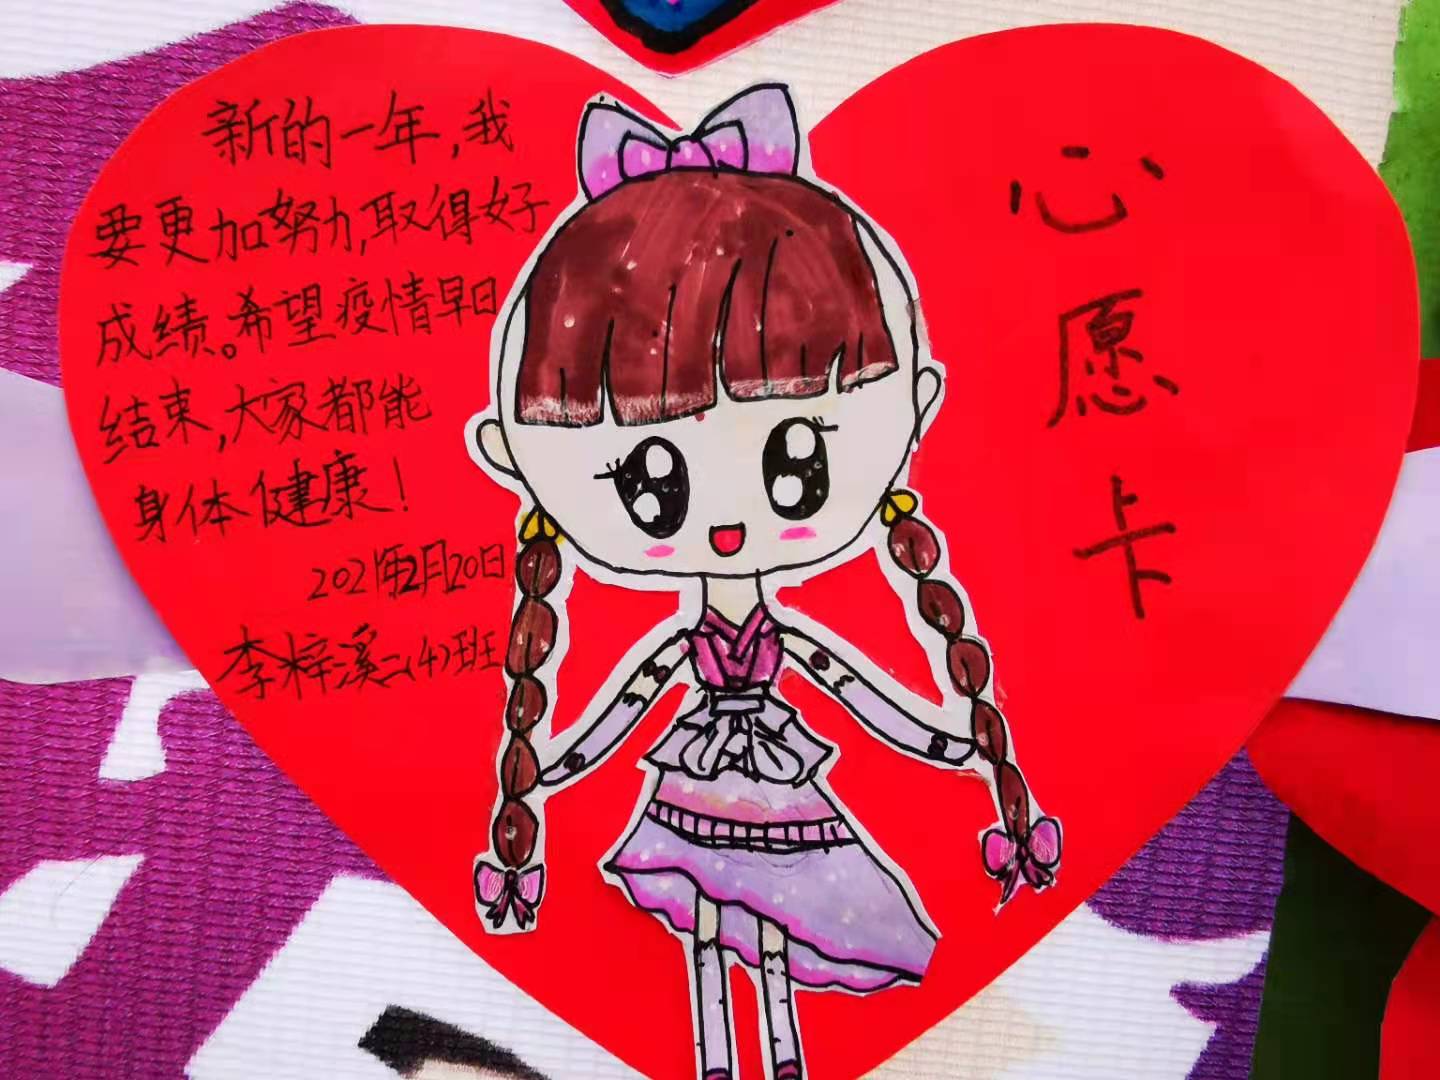 新的一年，我
要更加努力，取得好
成绩。希望疫情早日
结束，大家都能
身体健康！
2021年2月20日
李梓溪二(4)班
心愿卡